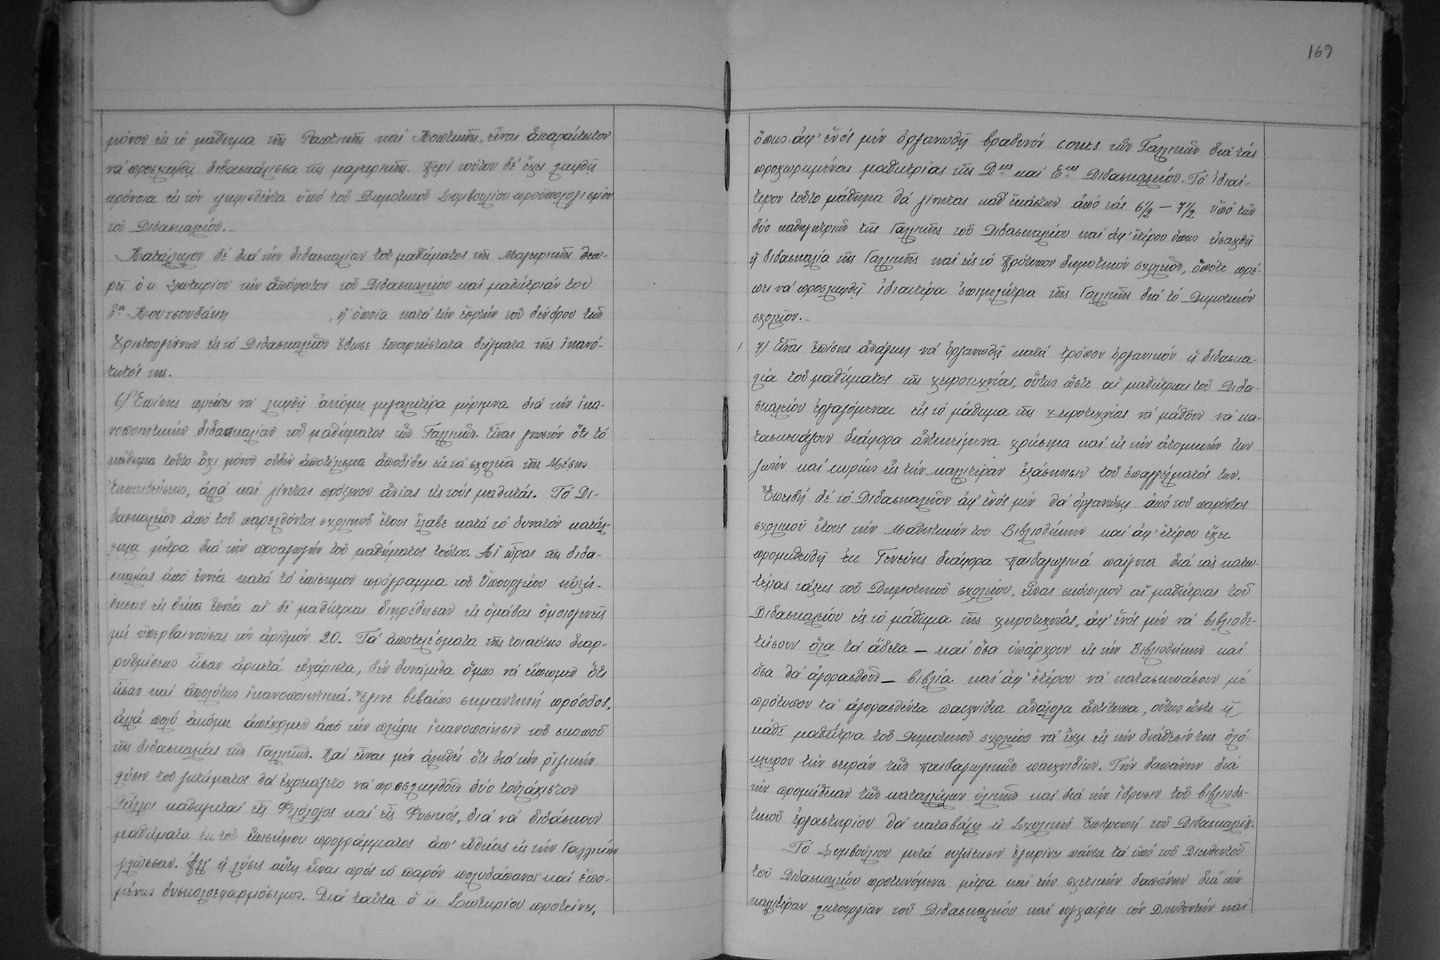 μόνον εἰς τὸ μάθημα τῆς Ραπτικῆς καὶ Κοπτικῆς, εἶναι ἀπαραίτητον
νὰ προσληφθῇ διδασκάλισσα τῆς μαγειρικῆς. Περὶ τούτου δὲ ἔχει ληφθῆ
πρόνοια εἰς τὸν ψηφισθέντα ὑπὸ τοῦ Δημοτικοῦ Συμβουλίου προϋπολογισμὸν
τοῦ Διδασκαλείου.-
Κατάλληλον δὲ διὰ τὴν διδασκαλίαν τοῦ μαθήματος τῆς Μαγειρικῆς θεω-
ρεῖ ὁ κ. Σωτηρίου τὴν ἀπόφοιτον τοῦ Διδασκαλείου καὶ μαθήτριάν του
δα Κουτσουδάκη , ἡ ὁποία κατὰ τὴν ἑορτὴν τοῦ δένδρου τῶν
Χριστουγέννων εἰς τὸ Διδασκαλεῖον ἔδωσε ἐπαρκέστατα δείγματα τῆς ἱκανό-
τητός της.
6) Ἐπίσης πρέπει νὰ ληφθῇ ἀκόμη μεγαλητέρα μέριμνα διὰ τὴν ἱκα-
νοποιητικὴν διδασκαλίαν τοῦ μαθήματος τῶν Γαλλικῶν. Εἶναι γνωστὸν ὅτι τὸ
μάθημα τοῦτο ὄχι μόνον οὐδὲν ἀποτέλεσμα ἀποδίδει εἰς τὰ σχολεῖα τῆς Μέσης
Ἐκπαιδεύσεως, ἀλλὰ καὶ γίνεται πρόξενον ἀνίας εἰς τοὺς μαθητάς. Τὸ Δι-
δασκαλεῖον ἀπὸ τοῦ παρελθόντος σχολικοῦ ἔτους ἔλαβε κατὰ τὸ δυνατὸν κατάλ-
ληλα μέτρα διὰ τὴν προαγωγὴν τοῦ μαθήματος τούτου. Αἱ ὧραι τῆς διδα-
σκαλίας ἀπὸ ἐννέα κατὰ τὸ ἐπίσημον πρόγραμμα τοῦ Ὑπουργείου ηὐξή-
θησαν εἰς δέκα ἐννέα αἱ δὲ μαθήτριαι διῃρέθησαν εἰς ὁμάδας ὁμοιογενεῖς
μὴ ὑπερβαινούσας τὸν ἀριθμὸν 20. Τὰ ἀποτελέσματα τῆς τοιαύτης διαρ-
ρυθμίσεως ἦσαν ἀρκετὰ εὐχάριστα, δὲν δυνάμεθα ὅμως νὰ εἴπωμεν ὅτι
ἦσαν καὶ ἀπολύτως ἱκανοποιητικά. Ἔγινε βεβαίως σημαντικὴ πρόοδος,
ἀλλὰ πολὺ ἀκόμη ἀπέχομεν ἀπὸ τὴν πλήρη ἱκανοποίησιν τοῦ σκοποῦ
τῆς διδασκαλίας τῶν Γαλλικῶν. Καὶ εἶναι μὲν ἀληθὲς ὅτι διὰ τὴν ριζικὴν
λύσιν τοῦ ζητήματος θὰ ἐχρειάζετο νὰ προσληφθοῦν δύο τοὐλάχιστον
Γάλλοι καθηγηταὶ εἷς Φιλόλογος καὶ εἷς Φυσικός, διὰ νὰ διδάσκουν
μαθήματα ἐκ τοῦ ἐπισήμου προγράμματος ἀπ' εὐθείας εἰς τὴν Γαλλικὴν
γλῶσσαν. Ἀλλ' ἡ λύσις αὕτη εἶναι πρὸς τὸ παρὸν πολυδάπανος καὶ ἑπο-
μένως δυσκολοεφαρμόσιμος. Διὰ ταῦτα ὁ κ. Σωτηρίου προτείνει,
169
ὅπως ἀφ' ἑνὸς μὲν ὀργανωθῇ βραδυνὸν cours τῶν Γαλλικῶν διὰ τὰς
προχωρημένας μαθητρίας τῆς Δης καὶ Εης Διδασκαλείου. Τὸ ἰδιαί-
τερον τοῦτο μάθημα θὰ γίνηται καθ' ἑκάστην ἀπὸ τὰς 6½ — 7½ ὑπὸ τῶν
δύο καθηγητριῶν τῆς Γαλλικῆς τοῦ Διδασκαλείου καὶ ἀφ' ἑτέρου ὅπως εἰσαχθῇ
ἡ διδασκαλία τῆς Γαλλικῆς καὶ εἰς τὸ Πρότυπον δημοτικὸν σχολεῖον, ὁπότε πρέ-
πει νὰ προσληφθῇ ἰδιαιτέρα ἐπιμελήτρια τῆς Γαλλικῆς διὰ τὸ Δημοτικὸν
σχολεῖον.-
7) Εἶναι ἐπίσης ἀνάγκη νὰ ὀργανωθῇ κατὰ τρόπον ὀργανικὸν ἡ διδασκα-
λία τοῦ μαθήματος τῆς χειροτεχνίας, οὕτως ὥστε αἱ μαθήτριαι τοῦ Διδα-
σκαλείου ἐργαζόμεναι εἰς τὸ μάθημα τῆς χειροτεχνίας νὰ μάθουν νὰ κα-
τασκευάζουν διάφορα ἀντικείμενα χρήσιμα καὶ εἰς τὴν ἀτομικήν των
ζωὴν καὶ κυρίως εἰς τὴν καλλιτέραν ἐξάσκησιν τοῦ ἐπαγγέλματός των.
Ἐπειδὴ δὲ τὸ Διδασκαλεῖον ἀφ' ἑνὸς μὲν θὰ ὀργανώσῃ ἀπὸ τοῦ παρόντος
σχολικοῦ ἔτους τὴν Μαθητικήν του Βιβλιοθήκην καὶ ἀφ' ἑτέρου ἔχει
προμηθευθῆ ἐκ Γενεύης διάφορα παιδαγωγικὰ παίγνια διὰ τὰς κατω-
τέρας τάξεις τοῦ Δημοτικοῦ σχολείου. Εἶναι σκόπιμον αἱ μαθήτριαι τοῦ
Διδασκαλείου εἰς τὸ μάθημα τῆς χειροτεχνίας, ἀφ' ἑνὸς μὲν νὰ βιβλιοδε-
τήσουν ὅλα τὰ ἄδετα — καὶ ὅσα ὑπάρχουν εἰς τὴν Βιβλιοθήκην καὶ
ὅσα θὰ ἀγορασθοῦν — βιβλία καὶ ἀφ' ἑτέρου νὰ κατασκευάσουν μὲ
πρότυπον τὰ ἀγορασθέντα παιχνίδια ἀνάλογα ἀντίτυπα, οὕτως ὥστε ἡ
κάθε μαθήτρια τοῦ Δημοτικοῦ σχολείου νὰ ἔχῃ εἰς τὴν διάθεσίν της ὁλό-
κληρον τὴν σειρὰν τῶν παιδαγωγικῶν παιχνιδίων. Τὴν δαπάνην διὰ
τὴν προμήθειαν τῶν καταλλήλων ὑλικῶν καὶ διὰ τὴν ἵδρυσιν τοῦ βιβλιοδε-
τικοῦ ἐργαστηρίου θὰ καταβάλῃ ἡ Σχολικὴ Ἐπιτροπὴ τοῦ Διδασκαλείου.
Τὸ Συμβούλιον μετὰ συζήτησιν ἐγκρίνει πάντα τὰ ὑπὸ τοῦ Διευθυντοῦ
τοῦ Διδασκαλείου προτεινόμενα μέτρα καὶ τὴν σχετικὴν δαπάνην διὰ τὴν
καλλιτέραν λειτουργίαν τοῦ Διδασκαλείου καὶ συγχαίρει τὸν Διευθυντὴν καὶ